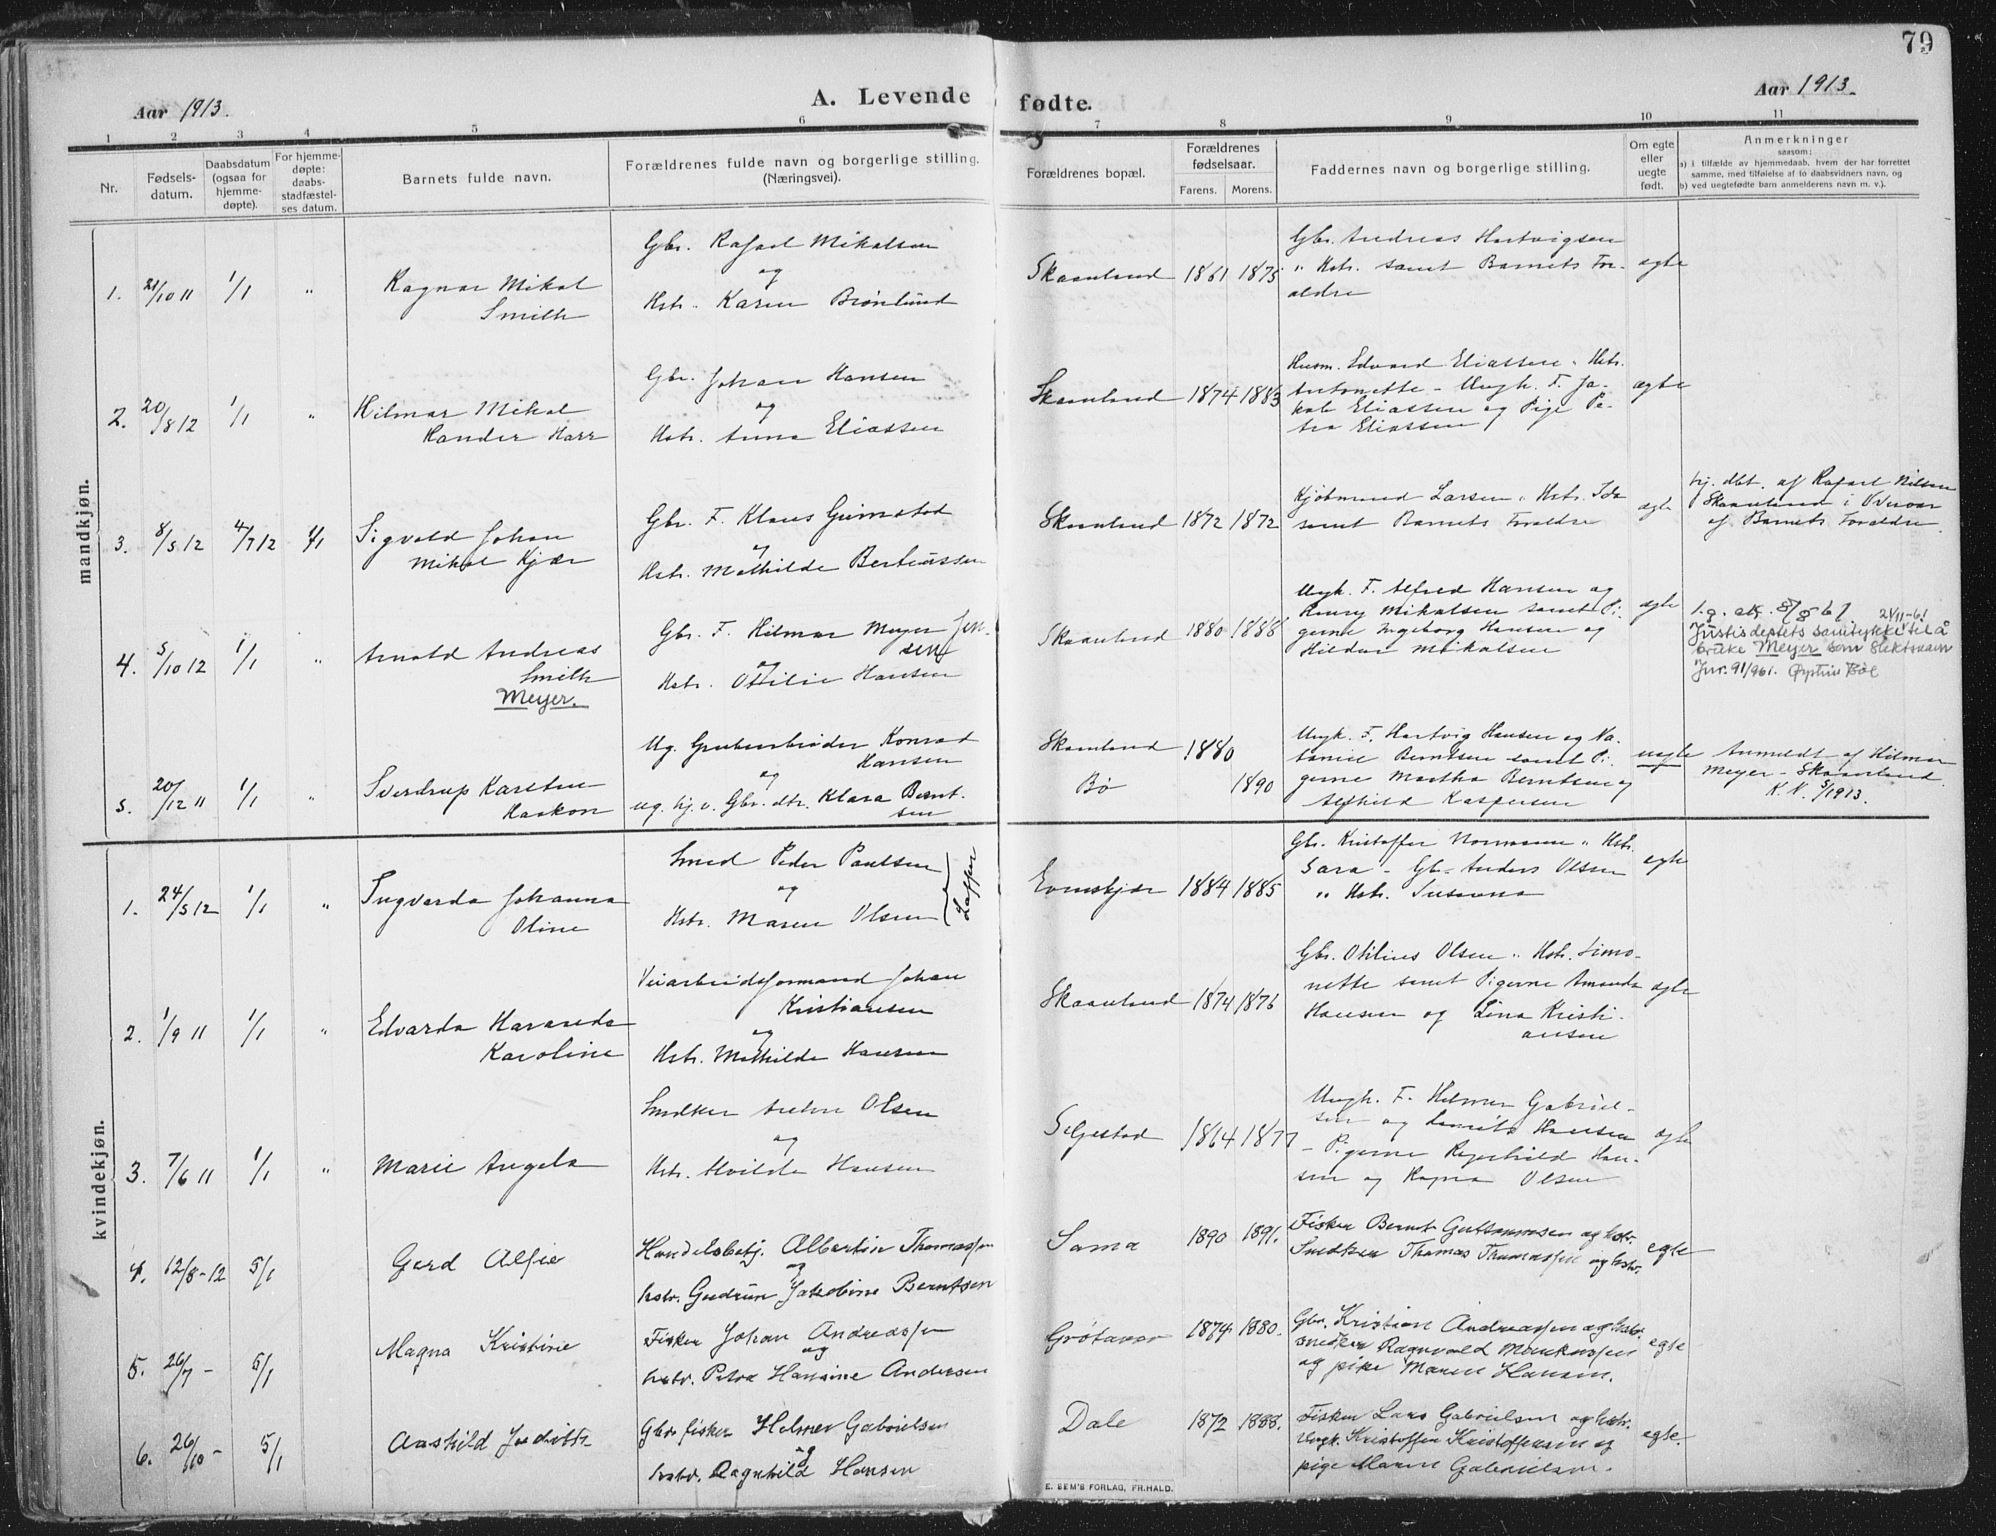 79
Aar 1913.
A. Levende fødte.
Aar 1913.
1 2 3 4 5 6 7 8 9 10 11
Nr.
Fødsels-
datum.
Daabsdatum
(ogsaa for
hjemme-
døpte).
For hjemme-
døpte:
daabs-
stadfæstel-
ses datum.
Barnets fulde navn.
Forældrenes fulde navn og borgerlige stilling.
(Næringsvei).
Forældrenes bopæl.
Forældrenes
fødselsaar.
Farens. Morens.
Faddernes navn og borgerlige stilling.
Om egte
eller
uegte
født.
Anmerkninger
saasom:
a) i tilfælde av hjemmedaab, hvem der har forrettet
samme, med tilføielse af to daabsvidners navn, og
b) ved uegtefødte barn anmelderens navn m. v.).
mandkjøn.
1. 21/10 11 1/1 "
Ragnar Mikal
Smith
Gbr. Rafael Mikalsen
og
Hstr. Karen Brønlund
Skaanland 1861 1875
Gbr. Andreas Hartvigsen
" Hstr. samt Barnets For-
ældre
ægte
2. 20/8 12 1/1 "
Hilmar Mikal
Hander Harr
Gbr. Johan Hansen
og
Hstr. Anna Eliassen
Skaanland 1874 1883
Husm. Edvard Eliassen " Hstr.
Antonette - Ungk. F. Ja-
kob Eliassen og Pige Pe-
tra Eliassen
ægte
3. 8/5 12 4/7 12 1/1
Sigvald Johan
Mikal Kjær
Gbr. F. Klaus Grimstad
og
Hstr. Mathilde Bertheussen
Skaanland 1872 1872
Kjøbmand Larsen " Hstr. Ida
samt Barnets Forældre
ægte
hj. dbt. af Rafael Nilsen
Skaanland i Overvær
af Barnets Forældre.
4. 5/10 12 1/1 "
Arnold Andreas
Smith
Meyer.
Gbr. F. Hilmar Meyer Jen-
sen
og
Hstr. Ottilie Hansen
Skaanland 1880 1888
Ungk. F. Alfred Hansen og
Henry Mikalsen samt Pi-
gerne Ingeborg Hansen og
Hildur Mikalsen
ægte
Justisdeptets samtykke til å
bruke Meyer som slektsnavn
Jnr. 91/961.
5. 20/12 11 1/1 "
Sverdrup Karsten
Haakon
Ug. Grubearbeider Konrad
Hansen
og
ug. hj. v. Gbr. dtr. Klara Bernt-
sen
Skaanland 1880
Bø 1890
Ungk. F. Hartvig Hansen og
Berntsen samt Pi-
gerne Martha Berntsen og
Alfhild Kaspersen
uægte
Anmeldt af Hilmar
Meyer - Skaanland.
K. N. 5/1913.
kvindekjøn.
1. 24/5 12 1/1 "
Ingvarda Johanna
Oline
Smed Peder Paulsen
og
Hstr. Maren Olsen
Evenskjær 1884 1885
Gbr. Kristoffer Normann " Hstr.
Sara - Gbr. Anders Olsen
" Hstr. Susanna
ægte
2. 1/9 11 1/1 "
Edvarda
Karoline
Veiarbeidsformand Johan
Kristiansen
og
Hstr. Mathilde Hansen
Skaanland 1874 1876
Gbr. Othlius Olsen " Hstr. Simo-
nette samt Pigerne Amanda
Hansen og Lina Kristi-
ansen
ægte
3. 7/6 11 1/1 "
Marie Angela
Snedker Olsen
og
Hstr. Hansen
Selgestad 1864 1877
Ungk. F. Hilmar Gabriel-
sen og Hansen
- Pigerne Regnhild Han-
sen og Ragna Olsen
ægte
4. 12/8-12 5/1
Gerd Alfie
Handelsbetj. Albertin Thomassen
og
hstr. Gudrun Jakobine Berntsen
Sama 1890 1891.
Fisker Bernt Guttormsen og hstr.
Snedker Thomas Thomassen og hstr.
egte
5. 26/7 - 5/1
Magna Kristine
Fisker Johan Andreassen
og
hstr. Petra Hansine Andersen
Grøtavær 1874. 1880.
Gbr. Kristian Andreassen og hstr.
snedker Ragnvald
og pike Maren Hansen.
egte
6. 26/10 - 5/1
Aashild Judith
Gbr. fisker Helmer Gabrielsen
og
hstr. Ragnhild Hansen
Dale 1872 1888.
Fisker Lars Gabrielsen og hstr.
Ungk. Kristoffer Kristoffersen og
pige Maren Gabrielsen.
egte.
E. SEM'S FORLAG, FR.HALD.